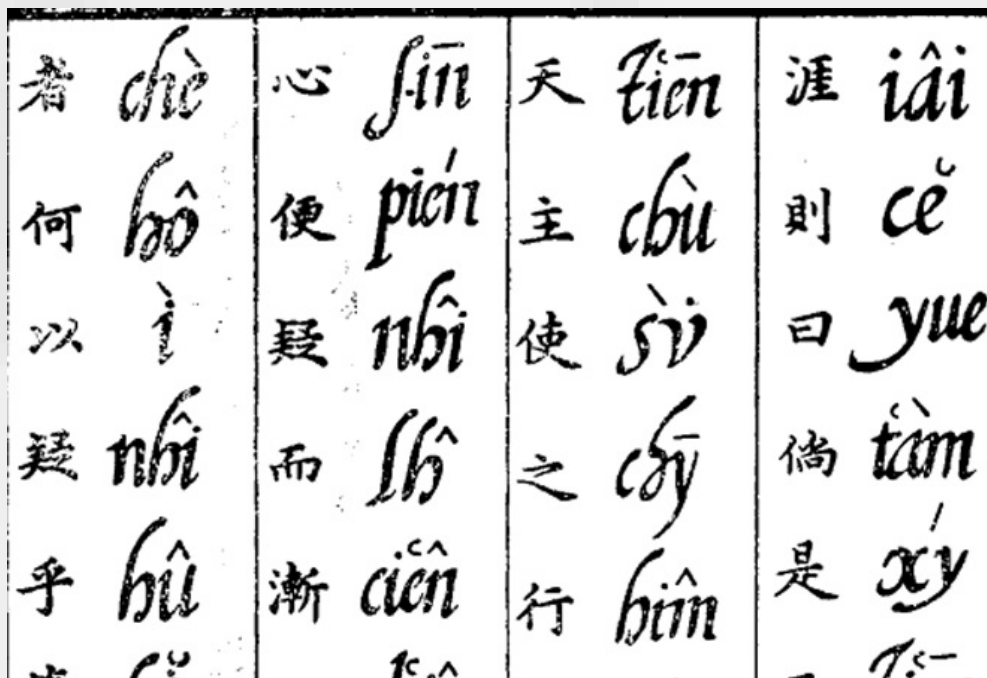 涯 iâi 則 cĕ 曰 yue 倘 tʻàm 是 xý
天 tʻiēn 主 chù 使 sv̀ 之 chȳ 行 hîm
心 ſin̄ 便 pién 疑 nhî 而 lĥ 漸 cʻiên
者 chè 何 hô 以 ì 疑 nhî 乎 hû